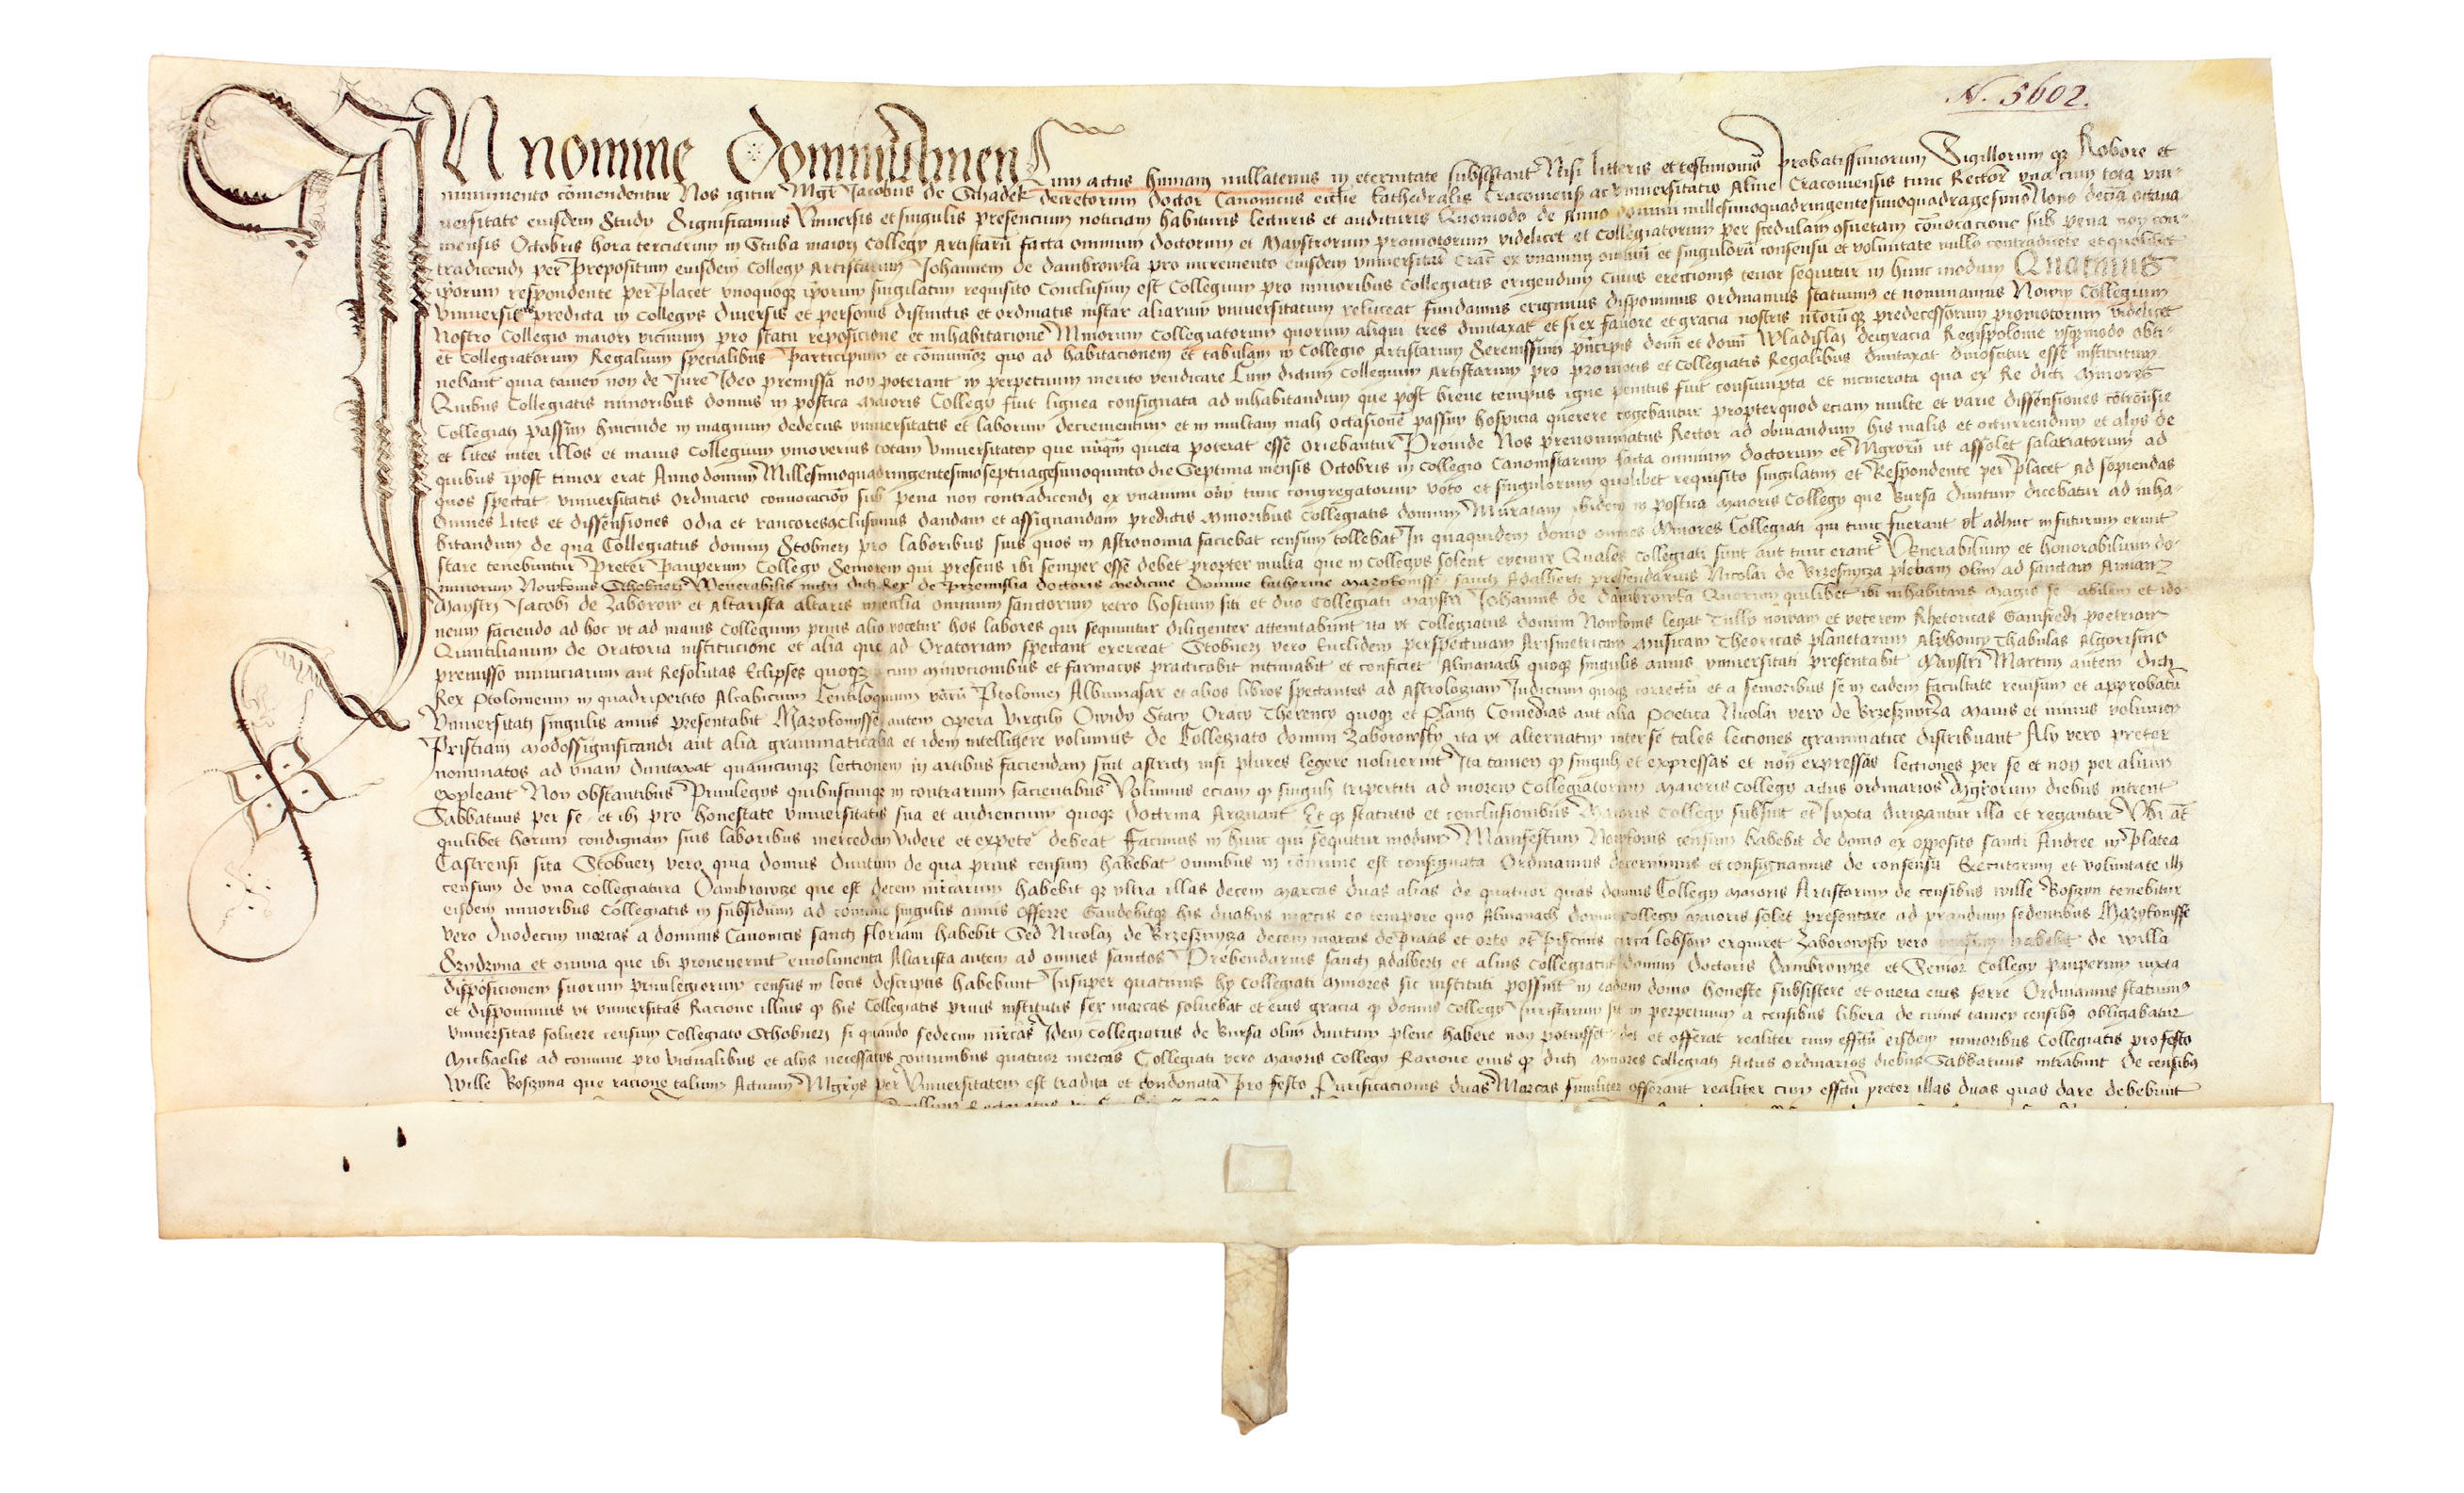 N. 5602.
IN nomine Domini Amen Cum actus humani nullatenus in eternitate subsistant Nisi litteris et testimoniis Probatissimorum Sigillorum qz Robore et
munimento comendentur Nos igitur Mgr Jacobus de Schadek decretorum doctor Canonicus ecclie Kathedralis Cracoviensis ac universitatis Alme Cracoviensis tunc Rector una cum tota uni-
versitate eiusdem Studii Significamus Universis et singulis presencium noticiam habituris lecturis et audituris Quomodo de Anno domini millesimoquadringentesimoquadragesimo Nono decia octava
mensis Octobris hora terciarum in Stuba maiori Collegy Artistaru facta omnium doctorum et Maystrorum promotorum videlicet et Collegiatorum per scedulam convocacione sub pena non con-
tradicendi per Prepositum eiusdem Collegy Artistarum Johannem de dambrowka pro incremento eiusdem universitatis Crac ex unanimi omniu et singuloru consensu et voluntate nullo contradicete et quolibet
iporum respondente per Placet unoquoqz iporum singilatim requisito Conclusum est Collegium pro minoribus Collegiatis erigendum Cuius erectionis tenor sequitur in hunc modum Quatinus
universitas predicta in Collegys diversis et personis distinctis et ordinatis instar aliarum universitatum reluceat fundamus erigimus disponimus ordinamus statuimus et nominamus Novum Collegium
Nostro Collegio maiori vicinum pro statu reposicione et inhabitacione Minorum Collegiatorum quorum aliqui tres dumtaxat et si ex favore et gracia nostris predecessorum promotorum videlicet
et Collegiatorum Regalium specialibus Participium et quo ad habitacionem et tabulam in Collegio Artistarum Serenissimi principis domi Wladislai deigracia Regispolonie usqzmodo obti-
nebant quia tamen non de Jure Ideo premissa non poterant in perpetuum merito vendicare Cum dictum Collegium Artistarum pro promotis et Collegiatis Regalibus dumtaxat dinoscitur esse institutum
Quibus Collegiatis minoribus domus in postica Maioris Collegy fuit lignea consignata ad inhabitandum que post breve tempus igne penitus fuit consumpta et incinerata qua ex Re dicti Minores
Collegiati passim hincinde in magnum dedecus universitatis et laborum decrementum et in multam mali occasione passim hospicia querere cogebantur propterquod eciam multe et varie dissensiones
et lites inter illos et maius Collegium totam Universitatem que quieta poterat esse oriebantur Proinde Nos prenominatus Rector ad obviandum his malis et occurrendum et alys de
quibus ipost timor erat Anno domini Millesimoquadringentesimoseptuagesimoquinto die Septima mensis Octobris in Collegio Canonistarum facta omnium doctorum et Mgroru ut assolet salariatorum ad
quos spectat universitatis ordinacio convocacion sub pena non contradicendi ex unanimi tunc congregatorum voto et singulorum quolibet requisito singilatim et Respondente per Placet Ad sopiendas
omnes Lites et dissensiones odia et rancores dandam et assignandam predictis Minoribus Collegiatis domum Muratam ibidem in postica Maioris Collegy que Bursa Divitum dicebatur ad inha-
bitandum de qua Collegiatus domini Stobneri pro laboribus suis quos in Astronomia faciebat censum tollebat In quaquidem domo omnes Minores Collegiati qui tunc fuerant ul adhuc in futurum erunt
stare tenebuntur Preter Pauperum Collegy Seniorem qui presens ibi semper esse debet propter multa que in Collegys solent evenire Quales Collegiati sunt aut tunc erant Venerabilium et honorabilium do-
minorum Nowkonis Schobneri Venerabilis mgri dicti Rex de Przemislia doctoris medicine Domine Katherine sancti Adalberti prebendarius Nicolai de Brzesznycza plebani olim ad sanctam Annam
Maystri Jacobi de Zaborow et Altarista altaris omnium sanctorum retro hostium siti et duo Collegiati Maystri Johannis de Dambrowka Quorum quilibet ibi inhabitans magis se abilem et ido
neum faciendo ad hoc ut ad maius Collegium prius alio vocetur hos labores qui sequuntur diligenter attemtabunt ita ut Collegiatus domini Nowkonis legat Tully novam et veterem Rhetoricas Gamfredi poetriam
Quintilianum de oratoria institucione et alia que ad Oratoriam spectant exerceat Stobneri vero Euclidem perspectivam Arismetricam Musicam Theoricas planetarum Alphoncy Thabulas Algorismo
premisso minuciarum aut Resolutas Eclipses quoqz cum minucionibus et farmacys practicabit intimabit et conficiet Almanach quoqz singulis annis universitati presentabit Maystri Martini autem dicti
Rex Ptolomeum in quadripertito Alcabicium Centiloquium Ptolomei Albumasar et alios libros spectantes ad Astrologiam Iudicium quoqz correctu et a senioribus se in eadem facultate revisum et approbatu
Universitati singulis annis presentabit autem opera Virgily Owidy Stacy Oracy Therency quoqz et Plauti Comedias aut alia Poetica Nicolai vero de Brzesznycza Maius et minus volumen
Prisciani modossignificandi aut alia grammaticalia et idem intelligere volumus de Collegiato domini Zaborowsky ita ut alternatim inter se tales lectiones grammatice distribuant Aly vero preter
nominatos ad unam dumtaxat quamcunqz lectionem in artibus faciendam sint astricti nisi plures legere voluerint Ita tamen q singuli et expressas et non expressas lectiones per se et non per alium
expleant Non obstantibus Privilegys quibuscunqz in contrarium facientibus Volumus eciam q singuli tripertiti ad morem Collegiatorum Maioris Collegy actus ordinarios Mgrorum diebus intrent
Sabbatinis per se et ibi pro honestate universitatis sua et audiencium quoqz doctrina Arguant Et q statutis et conclusionibus Maioris Collegy subsint et Iuxta dirigantur illa et regantur
quilibet horum condignam suis laboribus mercedem videre et expete debeat Facimus in hunc qui sequitur modum Manifestum Nowkonis censum habebit de domo ex opposito sancti Andree in Platea
Castrensi sita Stobneri vero quia domus divitum de qua prius censum habebat omnibus in comune est consignata Ordinamus decernimus et consignamus de consensu Executorum et voluntate illi
censum de una Collegiatura Dambrowcze que est decem marcarum habebit qz ultra illas decem marcas duas alias de quatuor quas domus Collegy Maioris Artistarum de censibus wille Boszyn tenebitur
eisdem minoribus Collegiatis in subsidium ad comune singulis annis offerre Gaudebitqz his duabus marcis eo tempore quo Almanach Collegy maioris solet presentare ad prandium sedentibus
vero duodecim marcas a dominis Canonicis sancti Floriani habebit Sed Nicolai de Brzesznycza decem marcas de Pratis et orto et Piscinis circa Lobsow exquiret Zaborowsky vero habebit de willa
et omnia que ibi provenerint emolimenta Altarista autem ad omnes sanctos Prebendarius sancti Adalberti et alius Collegiatus domini Doctoris Dambrowcze et Senior Collegy pauperum iuxta
disposicionem suorum privilegiorum census in locis descriptis habebunt Insuper quatinus hy Collegiati minores sic instituti possint in eadem domo honeste subsistere et onera eius ferre Ordinamus statuimus
et disponimus ut universitas Racione illius q his Collegiatis prius institutis sex marcas solvebat et eius gracia q domus Collegy Iuristarum sit in perpetuum a censibus libera de cuius tamen censibus obligabatur
universitas solvere censum Collegiato Schobneri si quando sedecim marcas Idem Collegiatus de Bursa olim divitum plene habere non potuisset det et offerat realiter cum effectu eisdem minoribus Collegiatis pro festo
Michaelis ad comune pro victualibus et alys necessarys comunibus quatuor marcas Collegiati vero Maioris Collegy Racione eius q dicti minores Collegiati Actus ordinarios diebus Sabbatinis intrabunt de censibus
wille Boszyna que racione talium Actuum Mgris per Universitatem est tradita et condonata pro festo Purificacionis duas Marcas similiter offerant realiter cum effectu preter illas duas quas dare debebunt